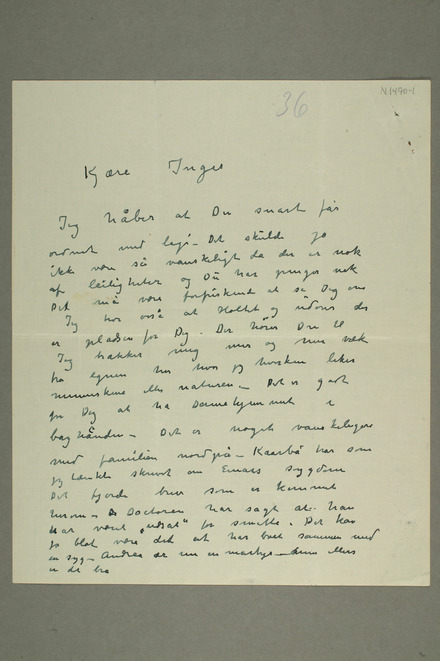 36
N.1490-1
Kjære Inger
Jeg håber at Du snart får
ordnet med leje. Det skulde jo
ikke være så vanskeligt da der er nok
af leiligheter og Du har penger nok
Det må være forfriskende at se Dig om
Jeg tror også at stedet og uderes der
er pladsen for Dig. Der hører Du til
Jeg trækker mig mer og mer væk
fra egnen her hvor jeg hverken liker
menneskene eller naturen. Det er godt
for Dig at ha Danskhjemmet i
baghånden. Det er noget vanskeligere
med familien nordpå. Kaarbö har som
jeg tænkte skrevet om Einars sygdom
Det fjerde brev som er kommet
herom. Doctoren har sagt at han
har været "udsat" for smitte. Det kan
jo blot være det at han har boet sammen med
en syg. Andrea er nu en martyr
er det bra